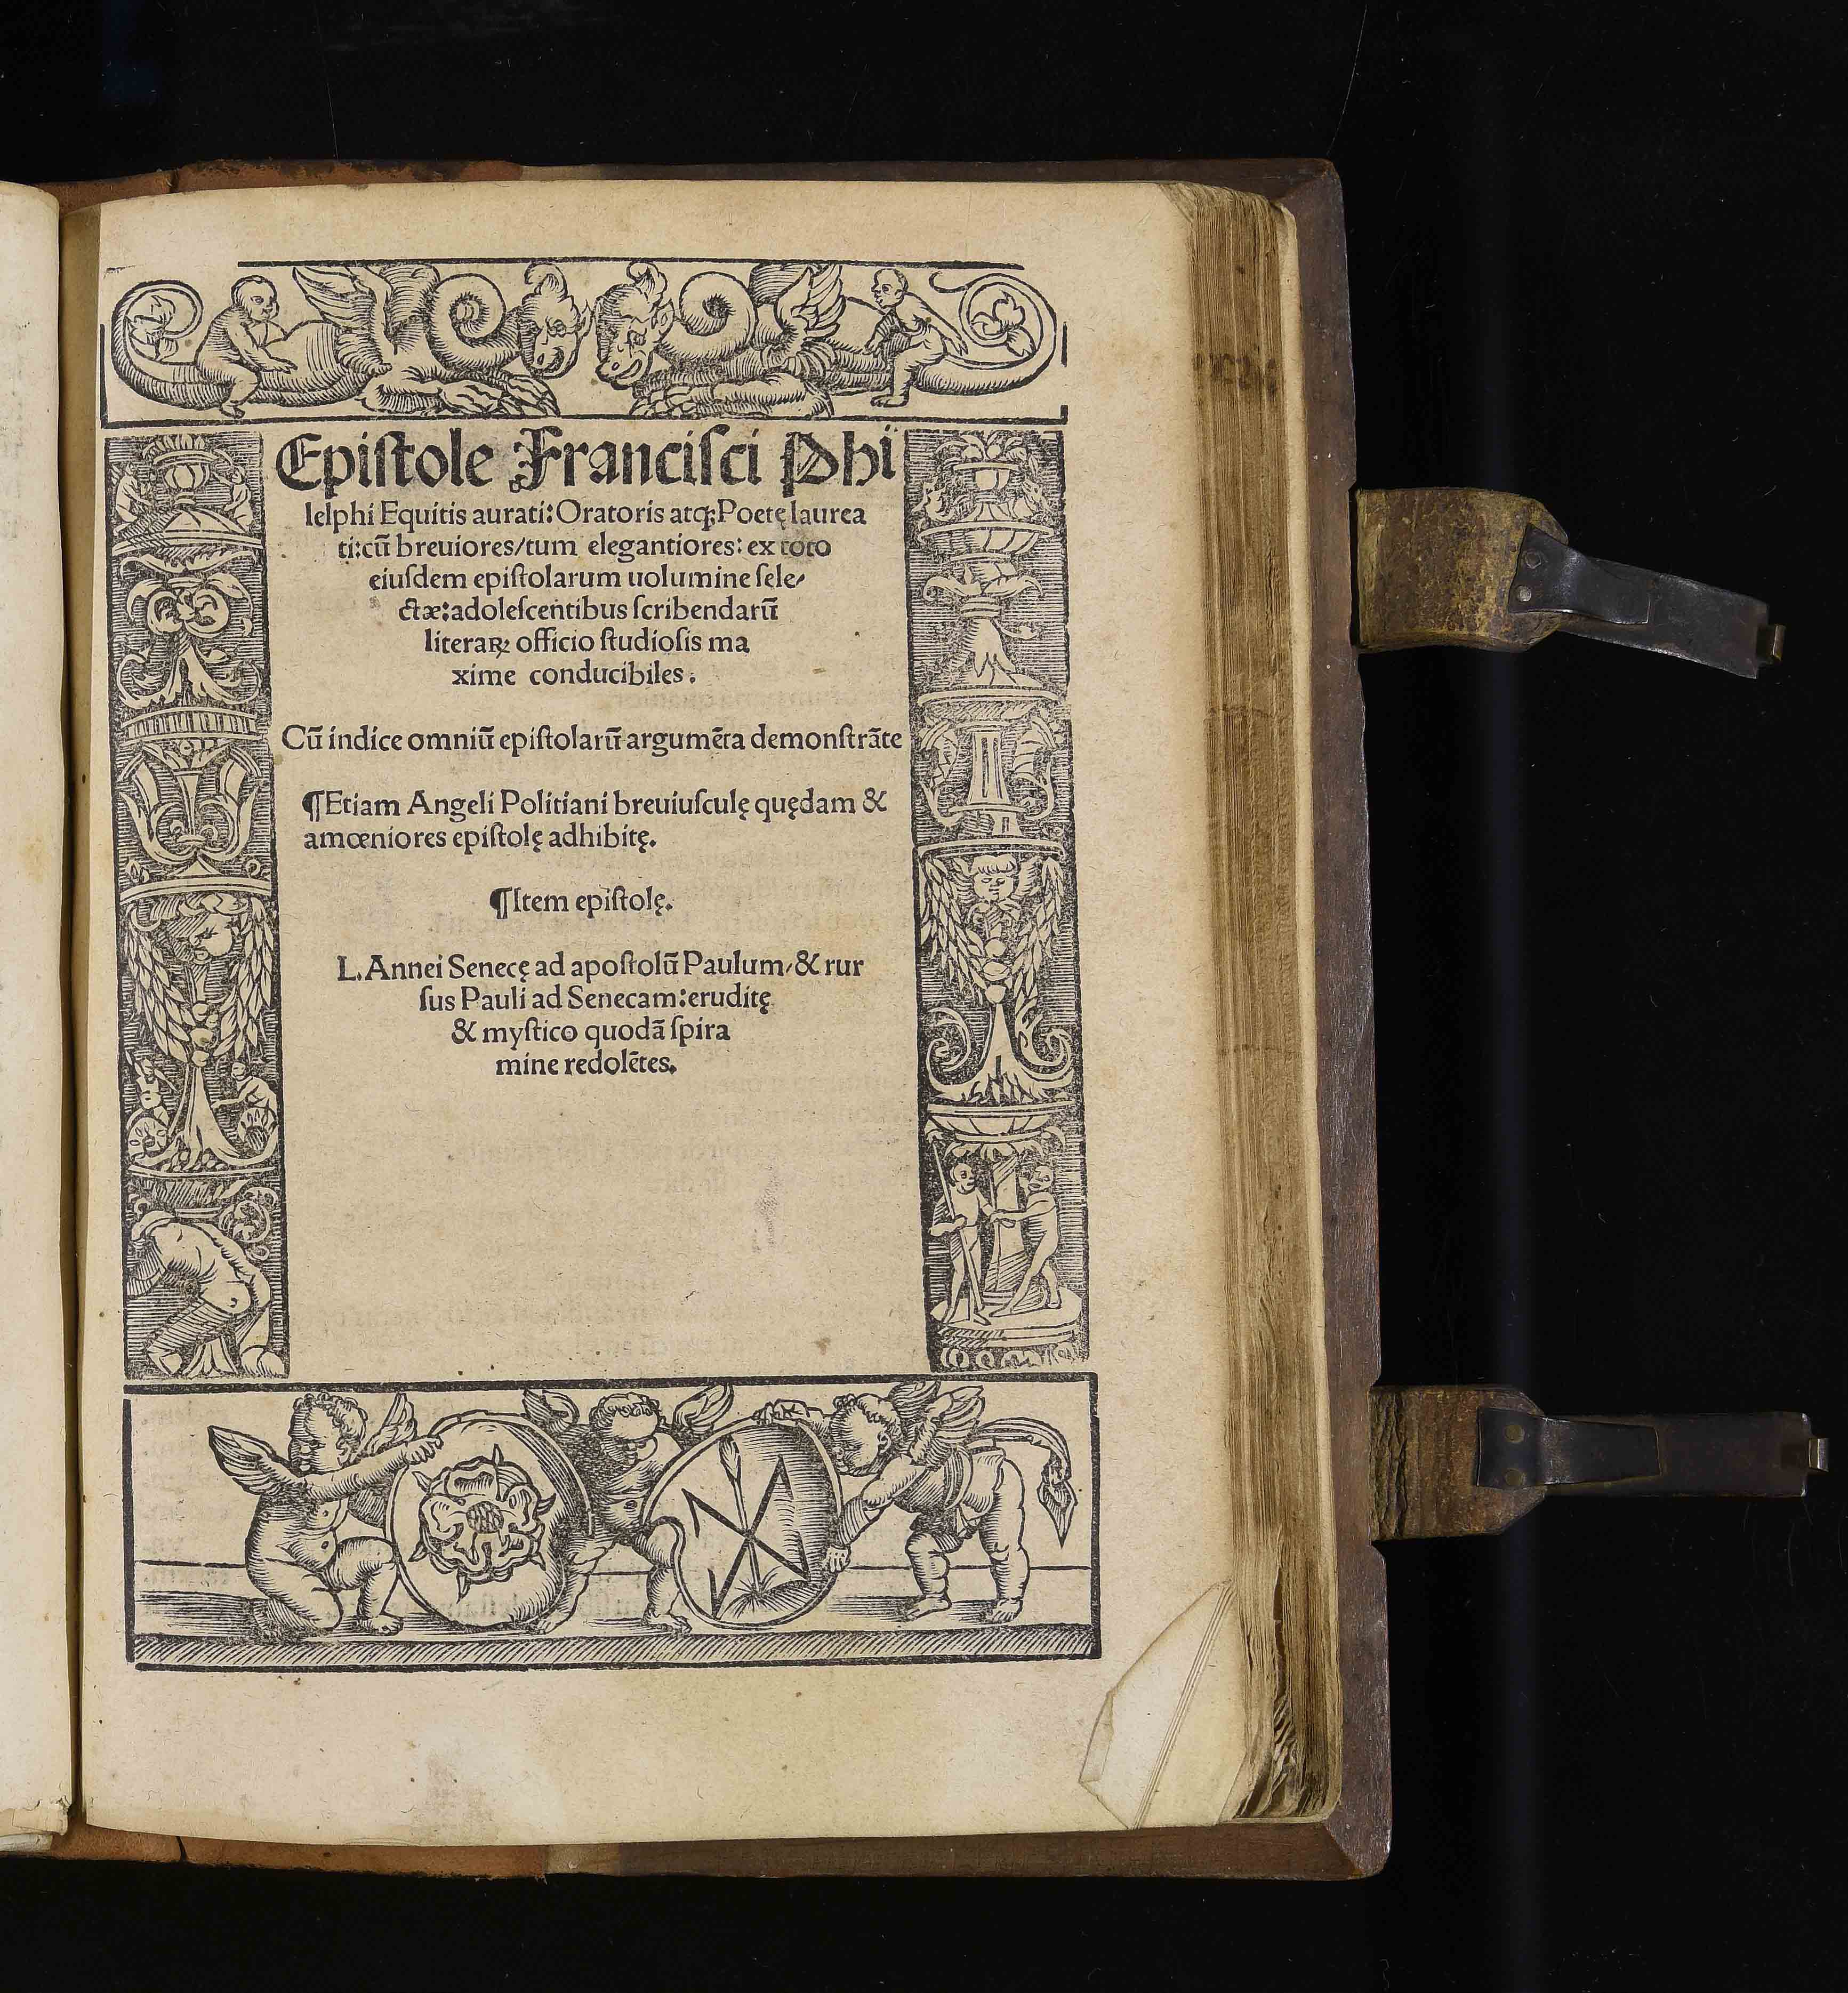 Epiſtole Franciſci Phi
lelphi Equitis aurati: Oratoris atq; Poetę laurea
ti: cū breuiores/tum elegantiores: ex toto
eiuſdem epiſtolarum uolumine ſele/
ctæ: adoleſcentibus ſcribendarū
literaꝝ officio ſtudioſis ma
xime conducibiles.
Cū indice omniū epiſtolarū argumēta demonſtrāte
¶Etiam Angeli Politiani breuiuſculę quędam &
amœniores epiſtolę adhibitę.
¶Item epiſtolę.
L. Annei Senecę ad apoſtolū Paulum, & rur
ſus Pauli ad Senecam: eruditę
& myſtico quodā ſpira
mine redolētes.